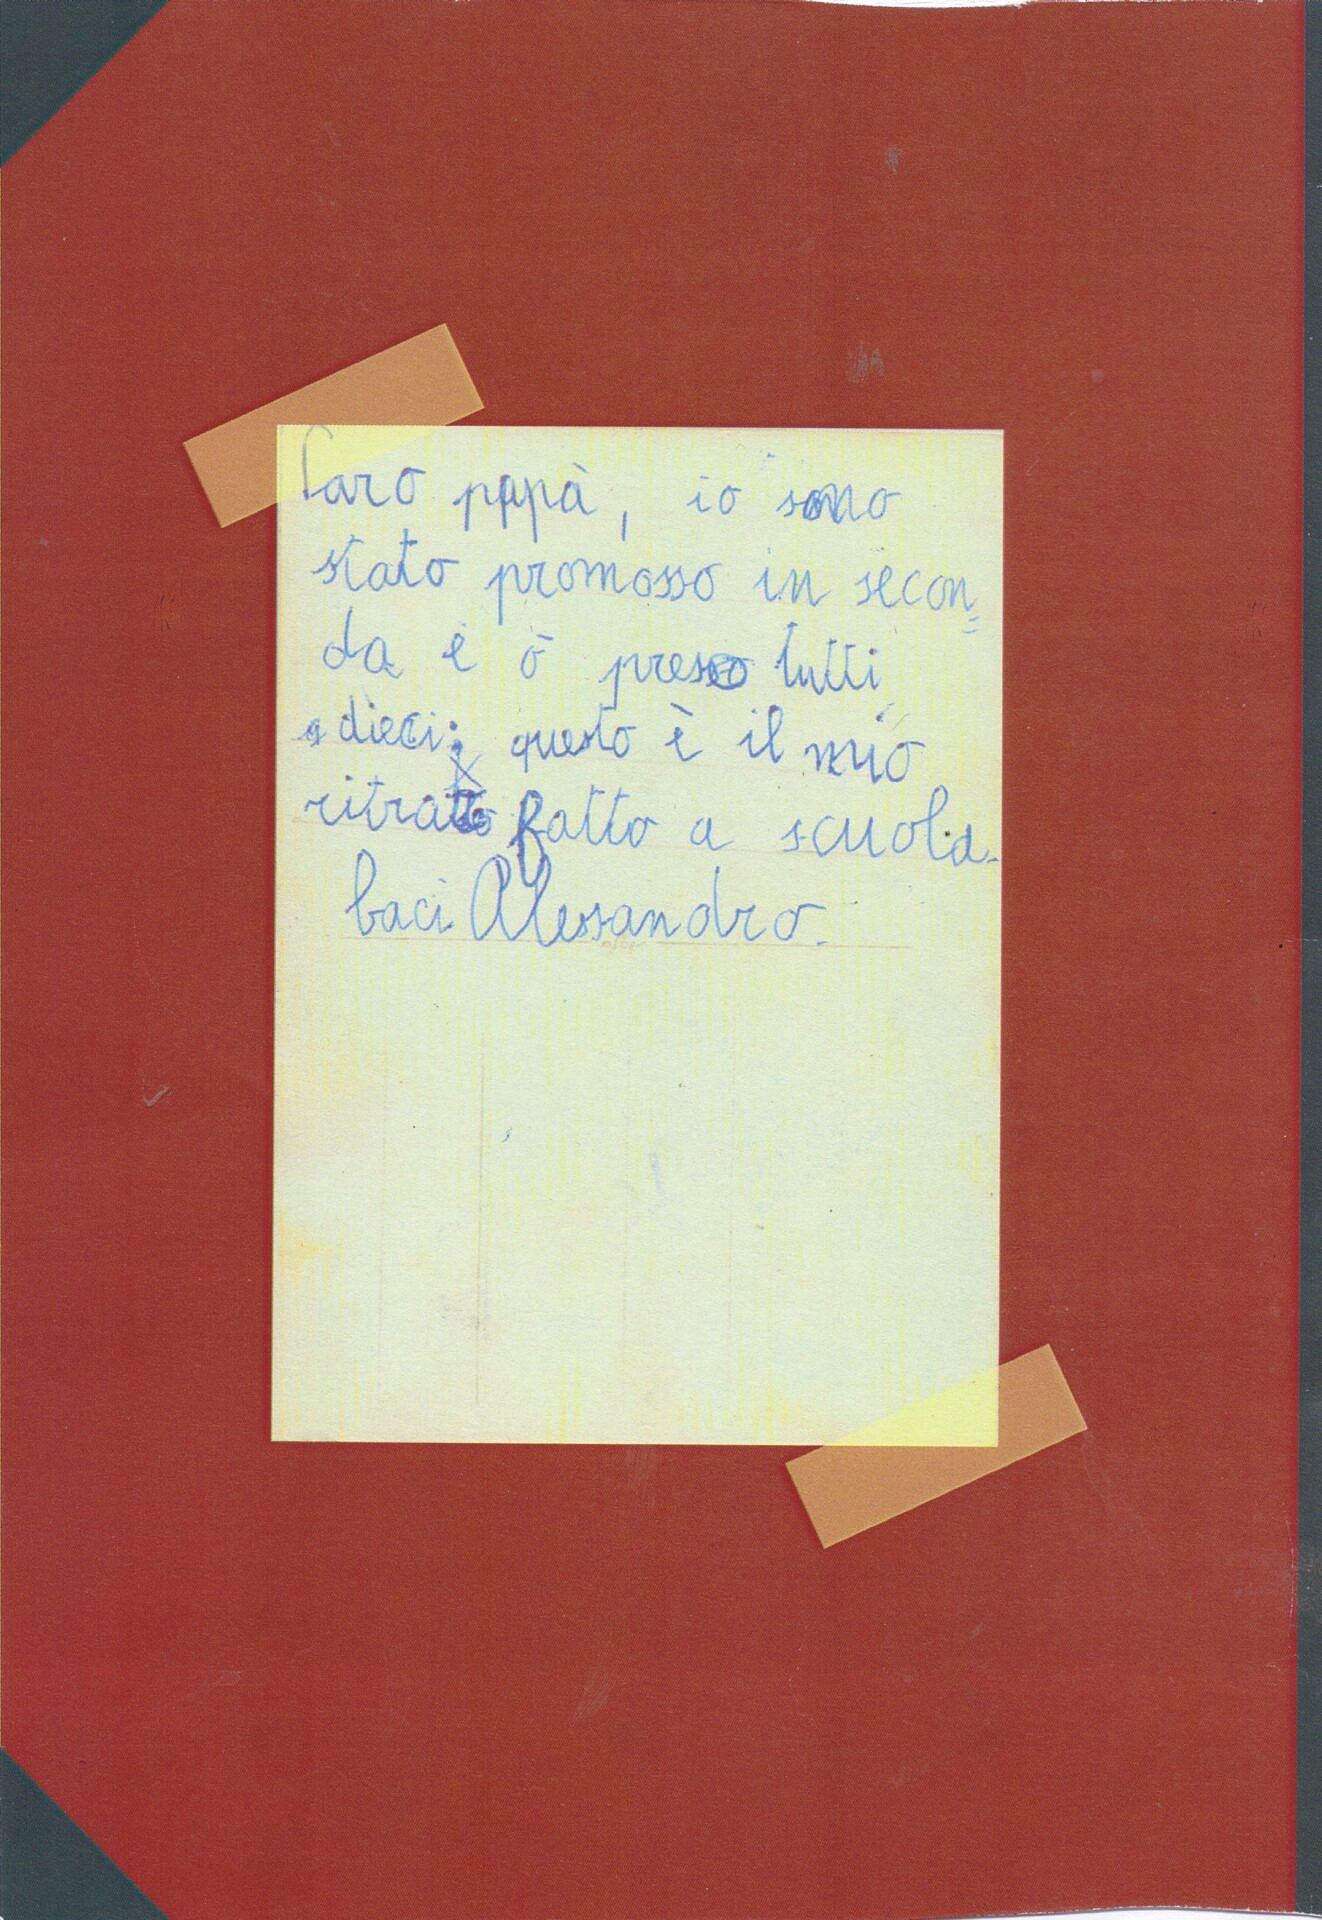 Caro papà, io sono
stato promosso in secon=
da e ò preso tutti
dieci; questo è il mio
ritratto fatto a scuola.
baci Alessandro.